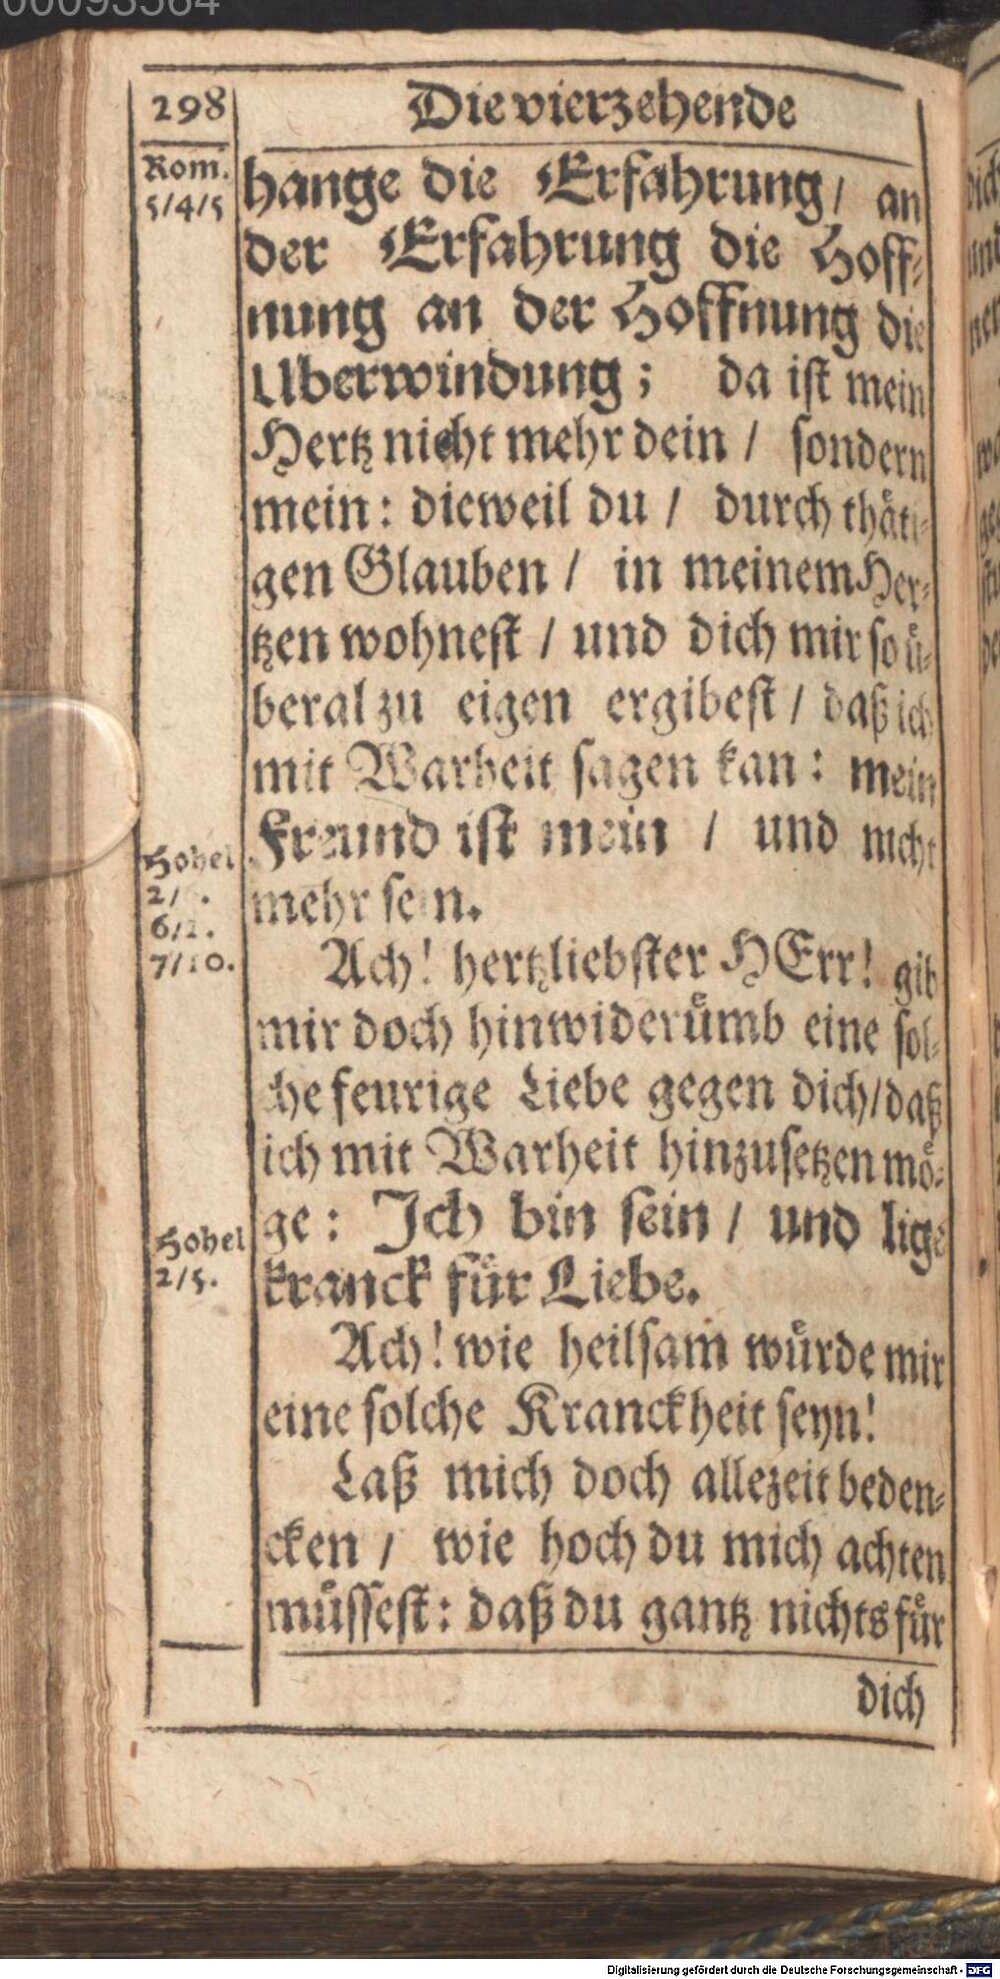 00093564
298
Die vierzehende
Rom.
5/4/5
hange die Erfahrung / an
der Erfahrung die Hoff-
nung an der Hoffnung die
Uberwindung; da ist mein
Hertz nicht mehr dein / sondern
mein: dieweil du / durch thåti-
gen Glauben / in meinem Her-
tzen wohnest / und dich mir so ů-
beral zu eigen ergibest / daß ich
mit Warheit sagen kan: mein
Freund ist mein / und nicht
mehr sein.
Hohel
2/
6/2.
7/10.
Ach! hertzliebster HErr! gib
mir doch hinwiderůmb eine sol-
che feurige Liebe gegen dich/daß
ich mit Warheit hinzusetzen mô-
ge: Jch bin sein / und lige
kranck fůr Liebe.
Hohel
2/5.
Ach! wie heilsam wůrde mir
eine solche Kranckheit seyn!
Laß mich doch allezeit beden-
cken / wie hoch du mich achten
můssest: daß du gantz nichts fůr
dich
Digitalisierung gefördert durch die Deutsche Forschungsgemeinschaft - DFG